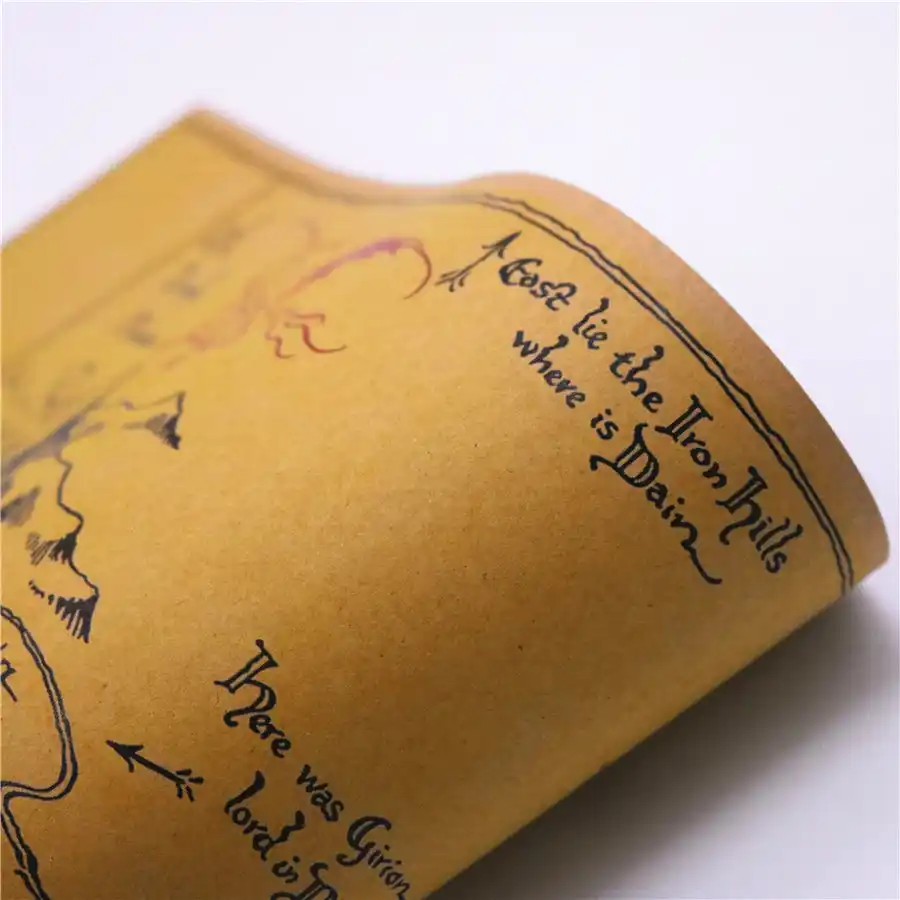 East lie the Iron Hills
where is Dain
Here was Girion
lord in